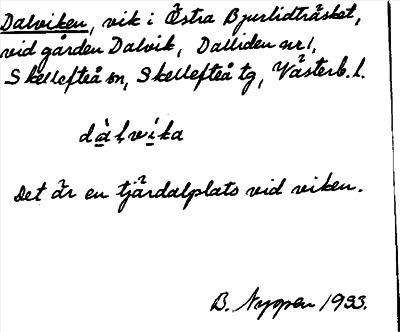 Dalviken, vik i Östra Bjurlidträsket,
vid gården Dalvik, Dalliden nr 1,
Skellefteå sn, Skellefteå tg, Västerb. l.
dàlvika
Det är en tjärdalplats vid viken.
B. Nygren 1933.